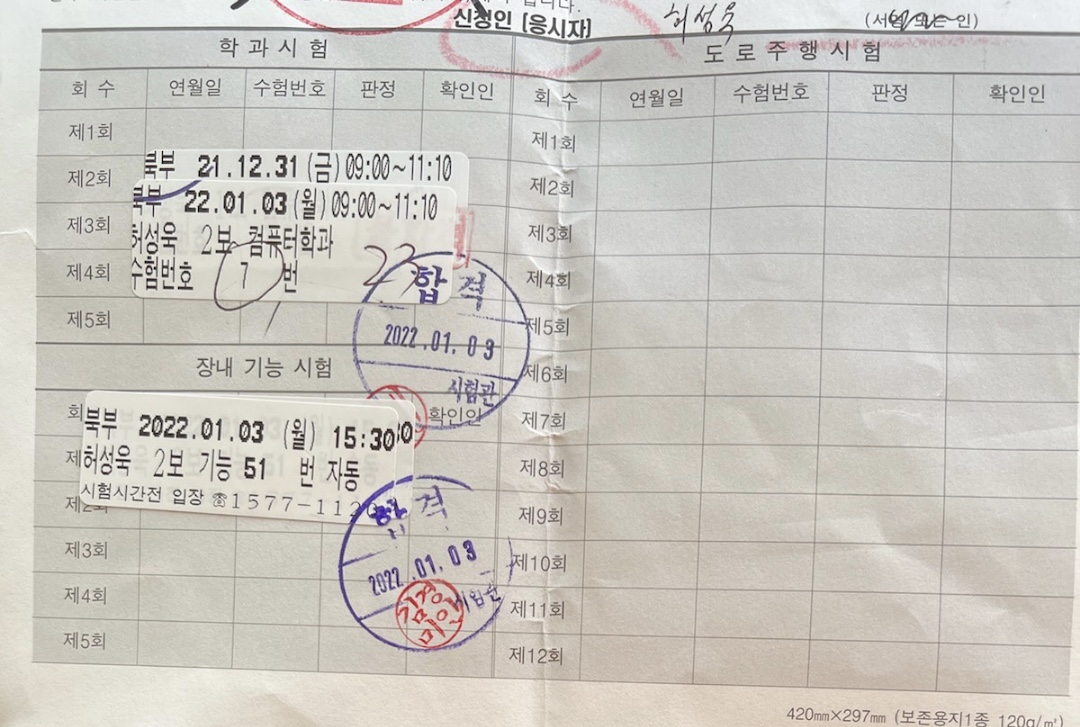 니다.
신청인 [응시자] 허성욱 (서명 또는 인)
학 과 시 험
도 로 주 행 시 험
회 수 연월일 수험번호 판정 확인인
회 수 연월일 수험번호 판정 확인인
제1회
제2회
제3회
제4회
제5회
북부 21.12.31 (금) 09:00~11:10
북부 22.01.03 (월) 09:00~11:10
허성욱 2보 컴퓨터학과
수험번호 7 번
합 격
2022.01.03
시험관
장내 기능 시험
회 확인인
북부 2022.01.03 (월) 15:30
허성욱 2보 기능 51 번 자동
시험시간전 입장 ☏1577-1120
제2회
제3회
제4회
제5회
합 격
2022.01.03
시험관
제1회
제2회
제3회
제4회
제5회
제6회
제7회
제8회
제9회
제10회
제11회
제12회
420㎜×297㎜ (보존용지1종 120g/㎡)